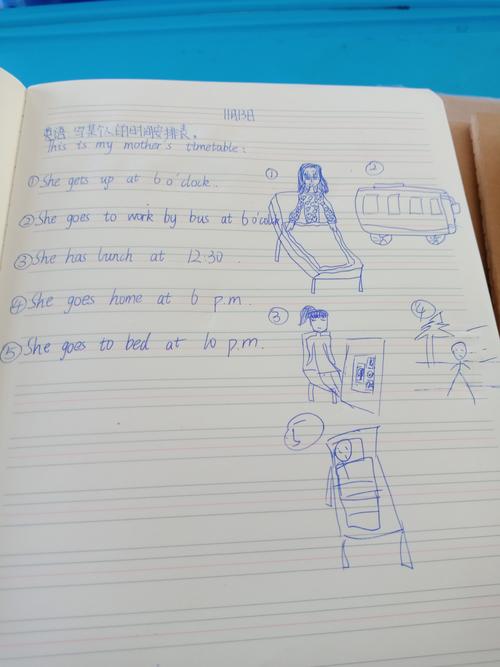 11月13日
英语 写某个人的时间安排表。
This is my mother's timetable:
①She gets up at 6 o'clock.
②She goes to work by bus at 6 o'clock
③She has lunch at 12:30.
④She goes home at 6 p.m.
⑤She goes to bed at 10 p.m.
①
②
③
④
5